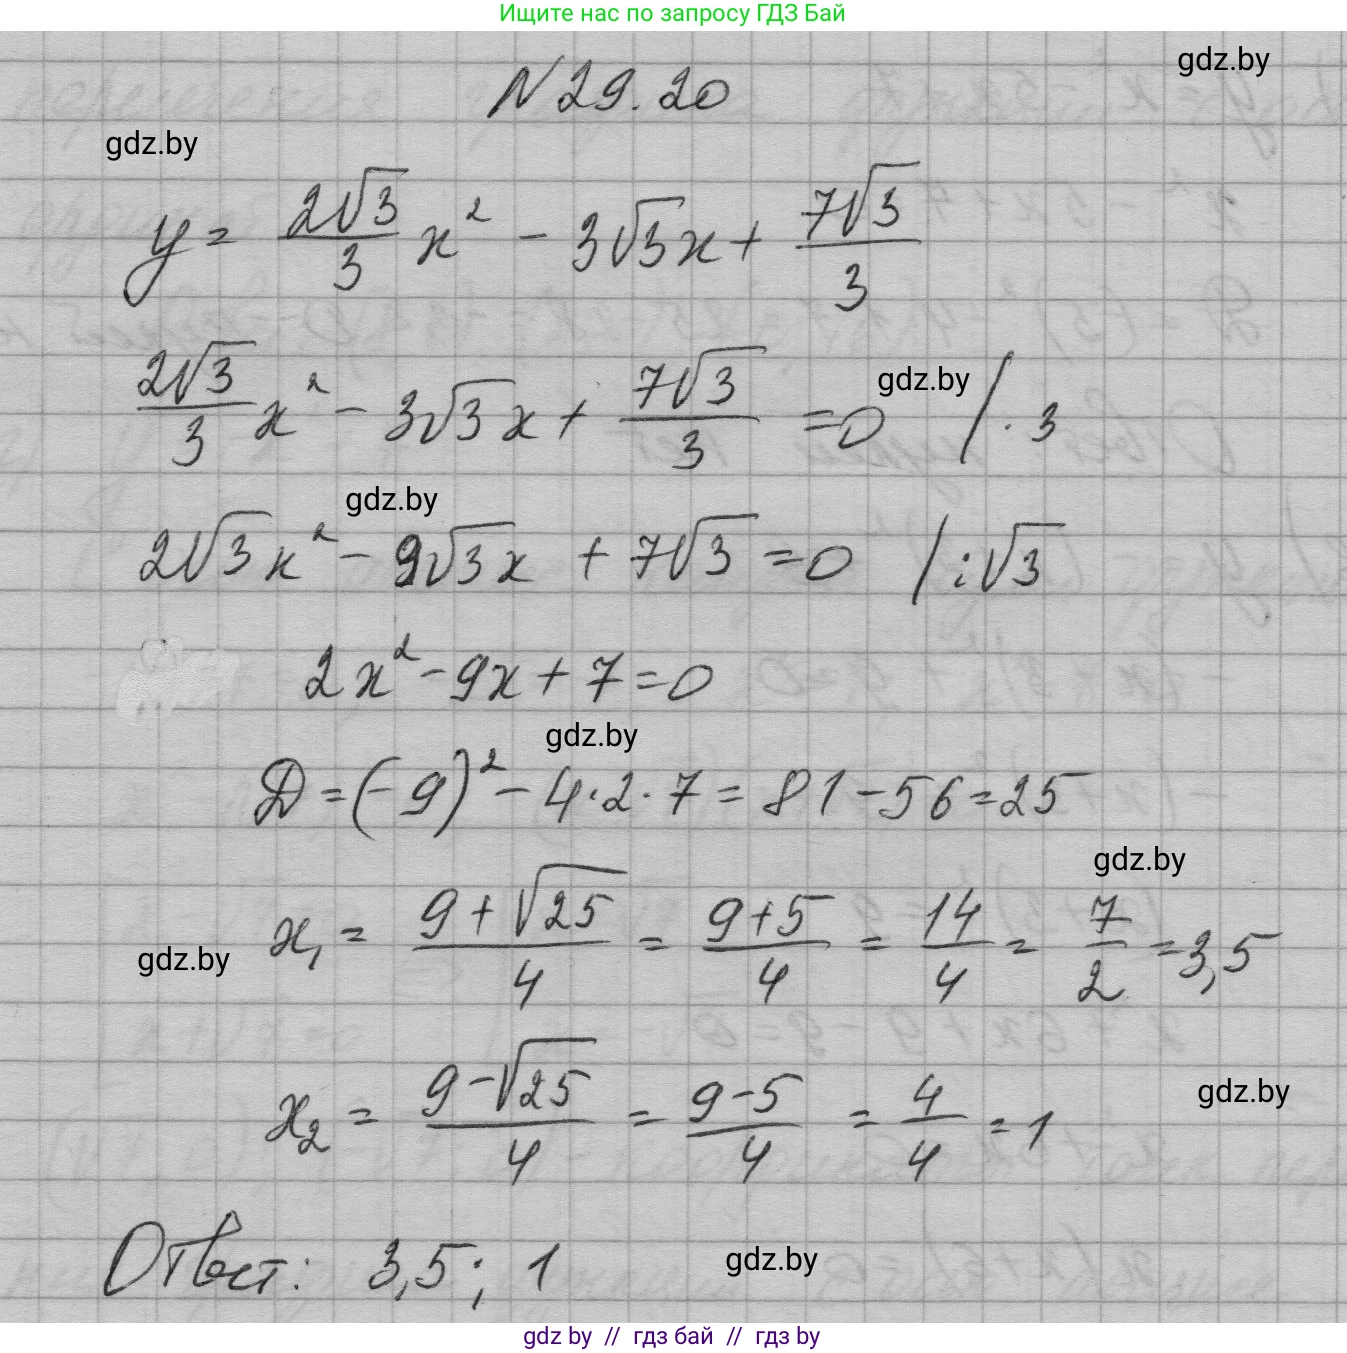 Ищите нас по запросу ГДЗ Бай
gdz.by
N 29.20
gdz.by
y = 2√3/3 x² - 3√3x + 7√3/3
2√3/3 x² - 3√3x + 7√3/3 = 0 /·3
gdz.by
gdz.by
2√3x² - 9√3x + 7√3 = 0 /:√3
2x² - 9x + 7 = 0
gdz.by
D = (-9)² - 4·2·7 = 81 - 56 = 25
gdz.by
x₁ = 9+√25/4 = 9+5/4 = 14/4 = 7/2 = 3,5
gdz.by
x₂ = 9-√25/4 = 9-5/4 = 4/4 = 1
gdz.by
Ответ: 3,5; 1
gdz.by
gdz by // гдз бай // гдз by